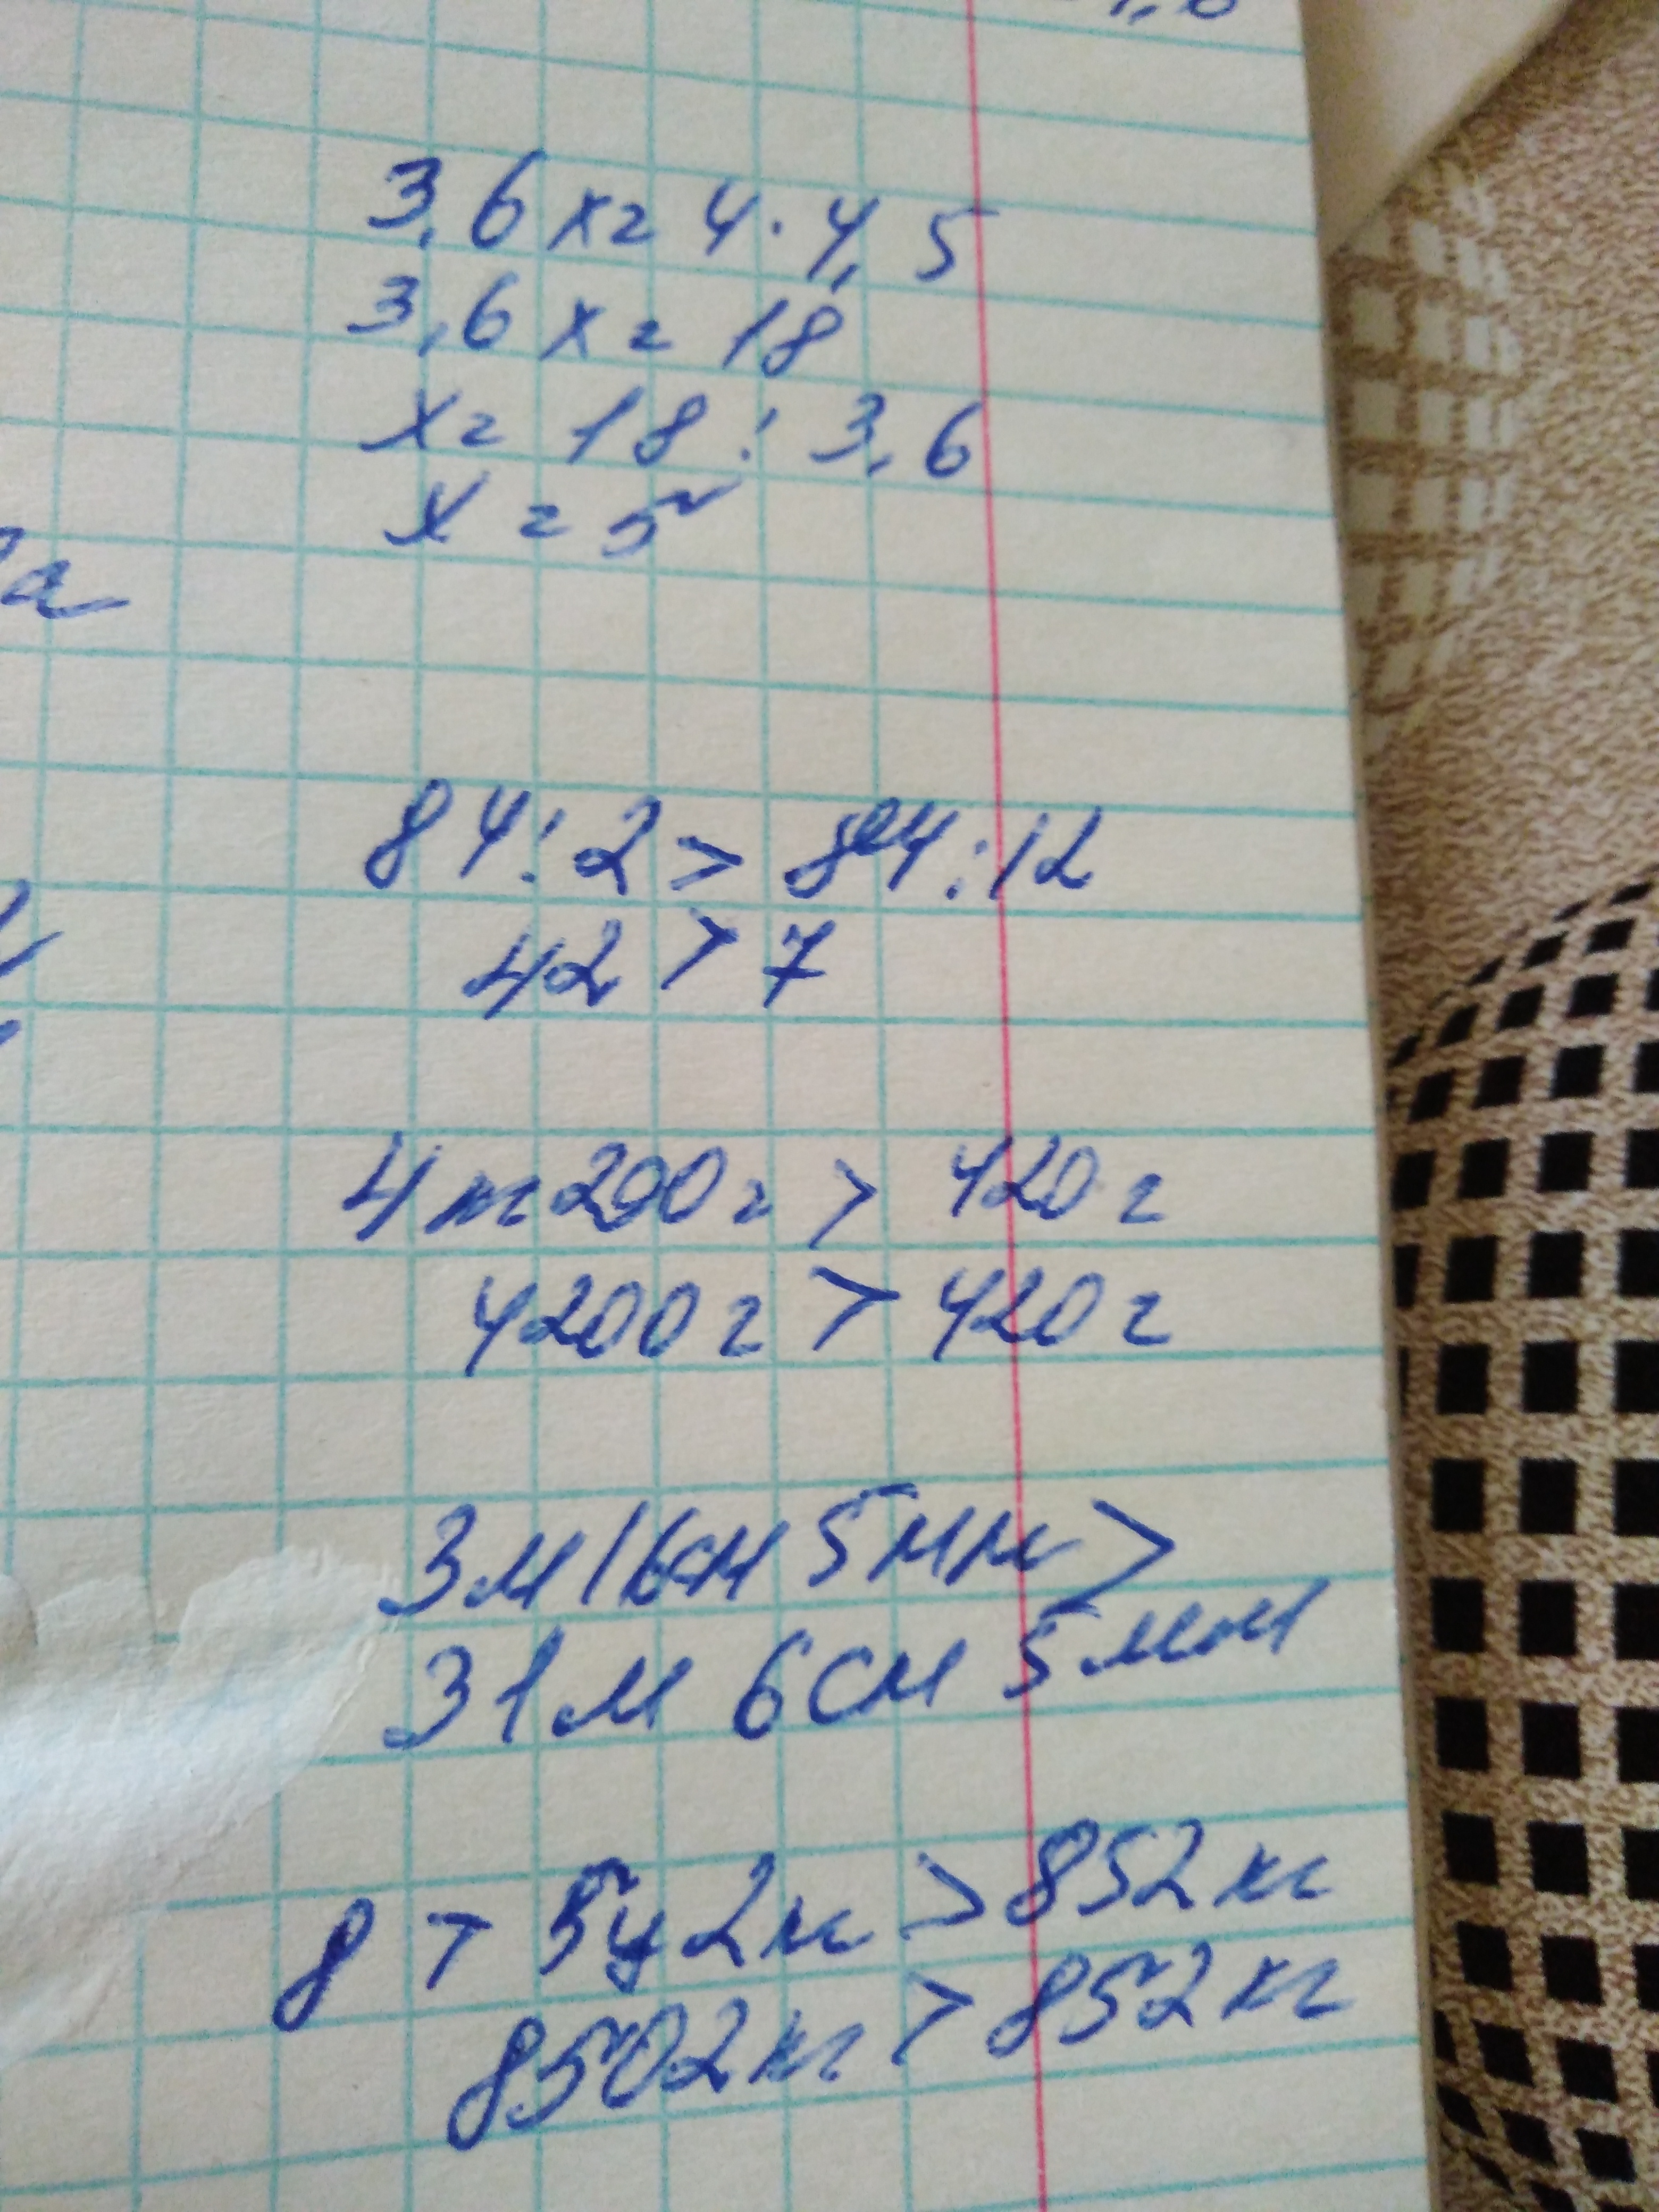 3,6 x = 4 · 4,5
3,6 x = 18
x = 18 : 3,6
x = 5
84 : 2 > 84 : 12
42 > 7
4 кг 200 г > 420 г
4200 г > 420 г
3 м 16 см 5 мм >
31 м 6 см 5 мм
8 т 5 ц 2 кг > 852 кг
8502 кг > 852 кг